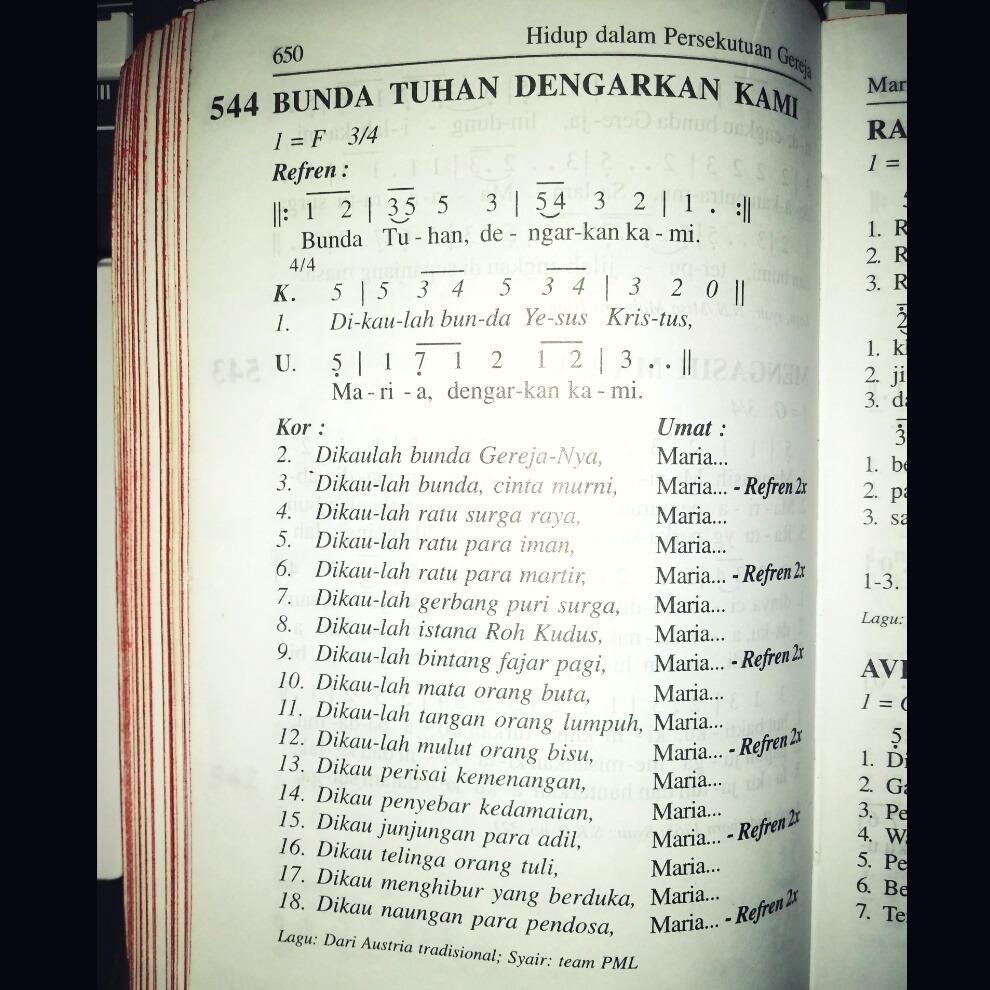 650 Hidup dalam Persekutuan Gereja
544 BUNDA TUHAN DENGARKAN KAMI
1 = F 3/4
Refren :
||: 1 2 | 3 5 5 3 | 5 4 3 2 | 1 . :||
Bunda Tu - han, de - ngar-kan ka - mi.
4/4
K. 5 | 5 3 4 5 3 4 | 3 2 0 ||
1. Di-kau-lah bun-da Ye-sus Kris-tus,
U. 5̣ | 1 7̣ 1 2 1 2 | 3 . . ||
Ma - ri - a, dengar-kan ka - mi.
Kor : Umat :
2. Dikaulah bunda Gereja-Nya, Maria...
3. Dikau-lah bunda, cinta murni, Maria... - Refren 2x
4. Dikau-lah ratu surga raya, Maria...
5. Dikau-lah ratu para iman, Maria...
6. Dikau-lah ratu para martir, Maria... - Refren 2x
7. Dikau-lah gerbang puri surga, Maria...
8. Dikau-lah istana Roh Kudus, Maria...
9. Dikau-lah bintang fajar pagi, Maria... - Refren 2x
10. Dikau-lah mata orang buta, Maria...
11. Dikau-lah tangan orang lumpuh, Maria...
12. Dikau-lah mulut orang bisu, Maria... - Refren 2x
13. Dikau perisai kemenangan, Maria...
14. Dikau penyebar kedamaian, Maria...
15. Dikau junjungan para adil, Maria... - Refren 2x
16. Dikau telinga orang tuli, Maria...
17. Dikau menghibur yang berduka, Maria...
18. Dikau naungan para pendosa, Maria... - Refren 2x
Lagu: Dari Austria tradisional; Syair: team PML
Mar
RA
1 =
1. R
2. R
3. R
1. kl
2. ji
3. da
3
1. be
2. pa
3. sa
1-3.
Lagu:
AVI
1 =
5̣
1. Di
2. Ga
3. Pe
4. W
5. Pe
6. Be
7. Te